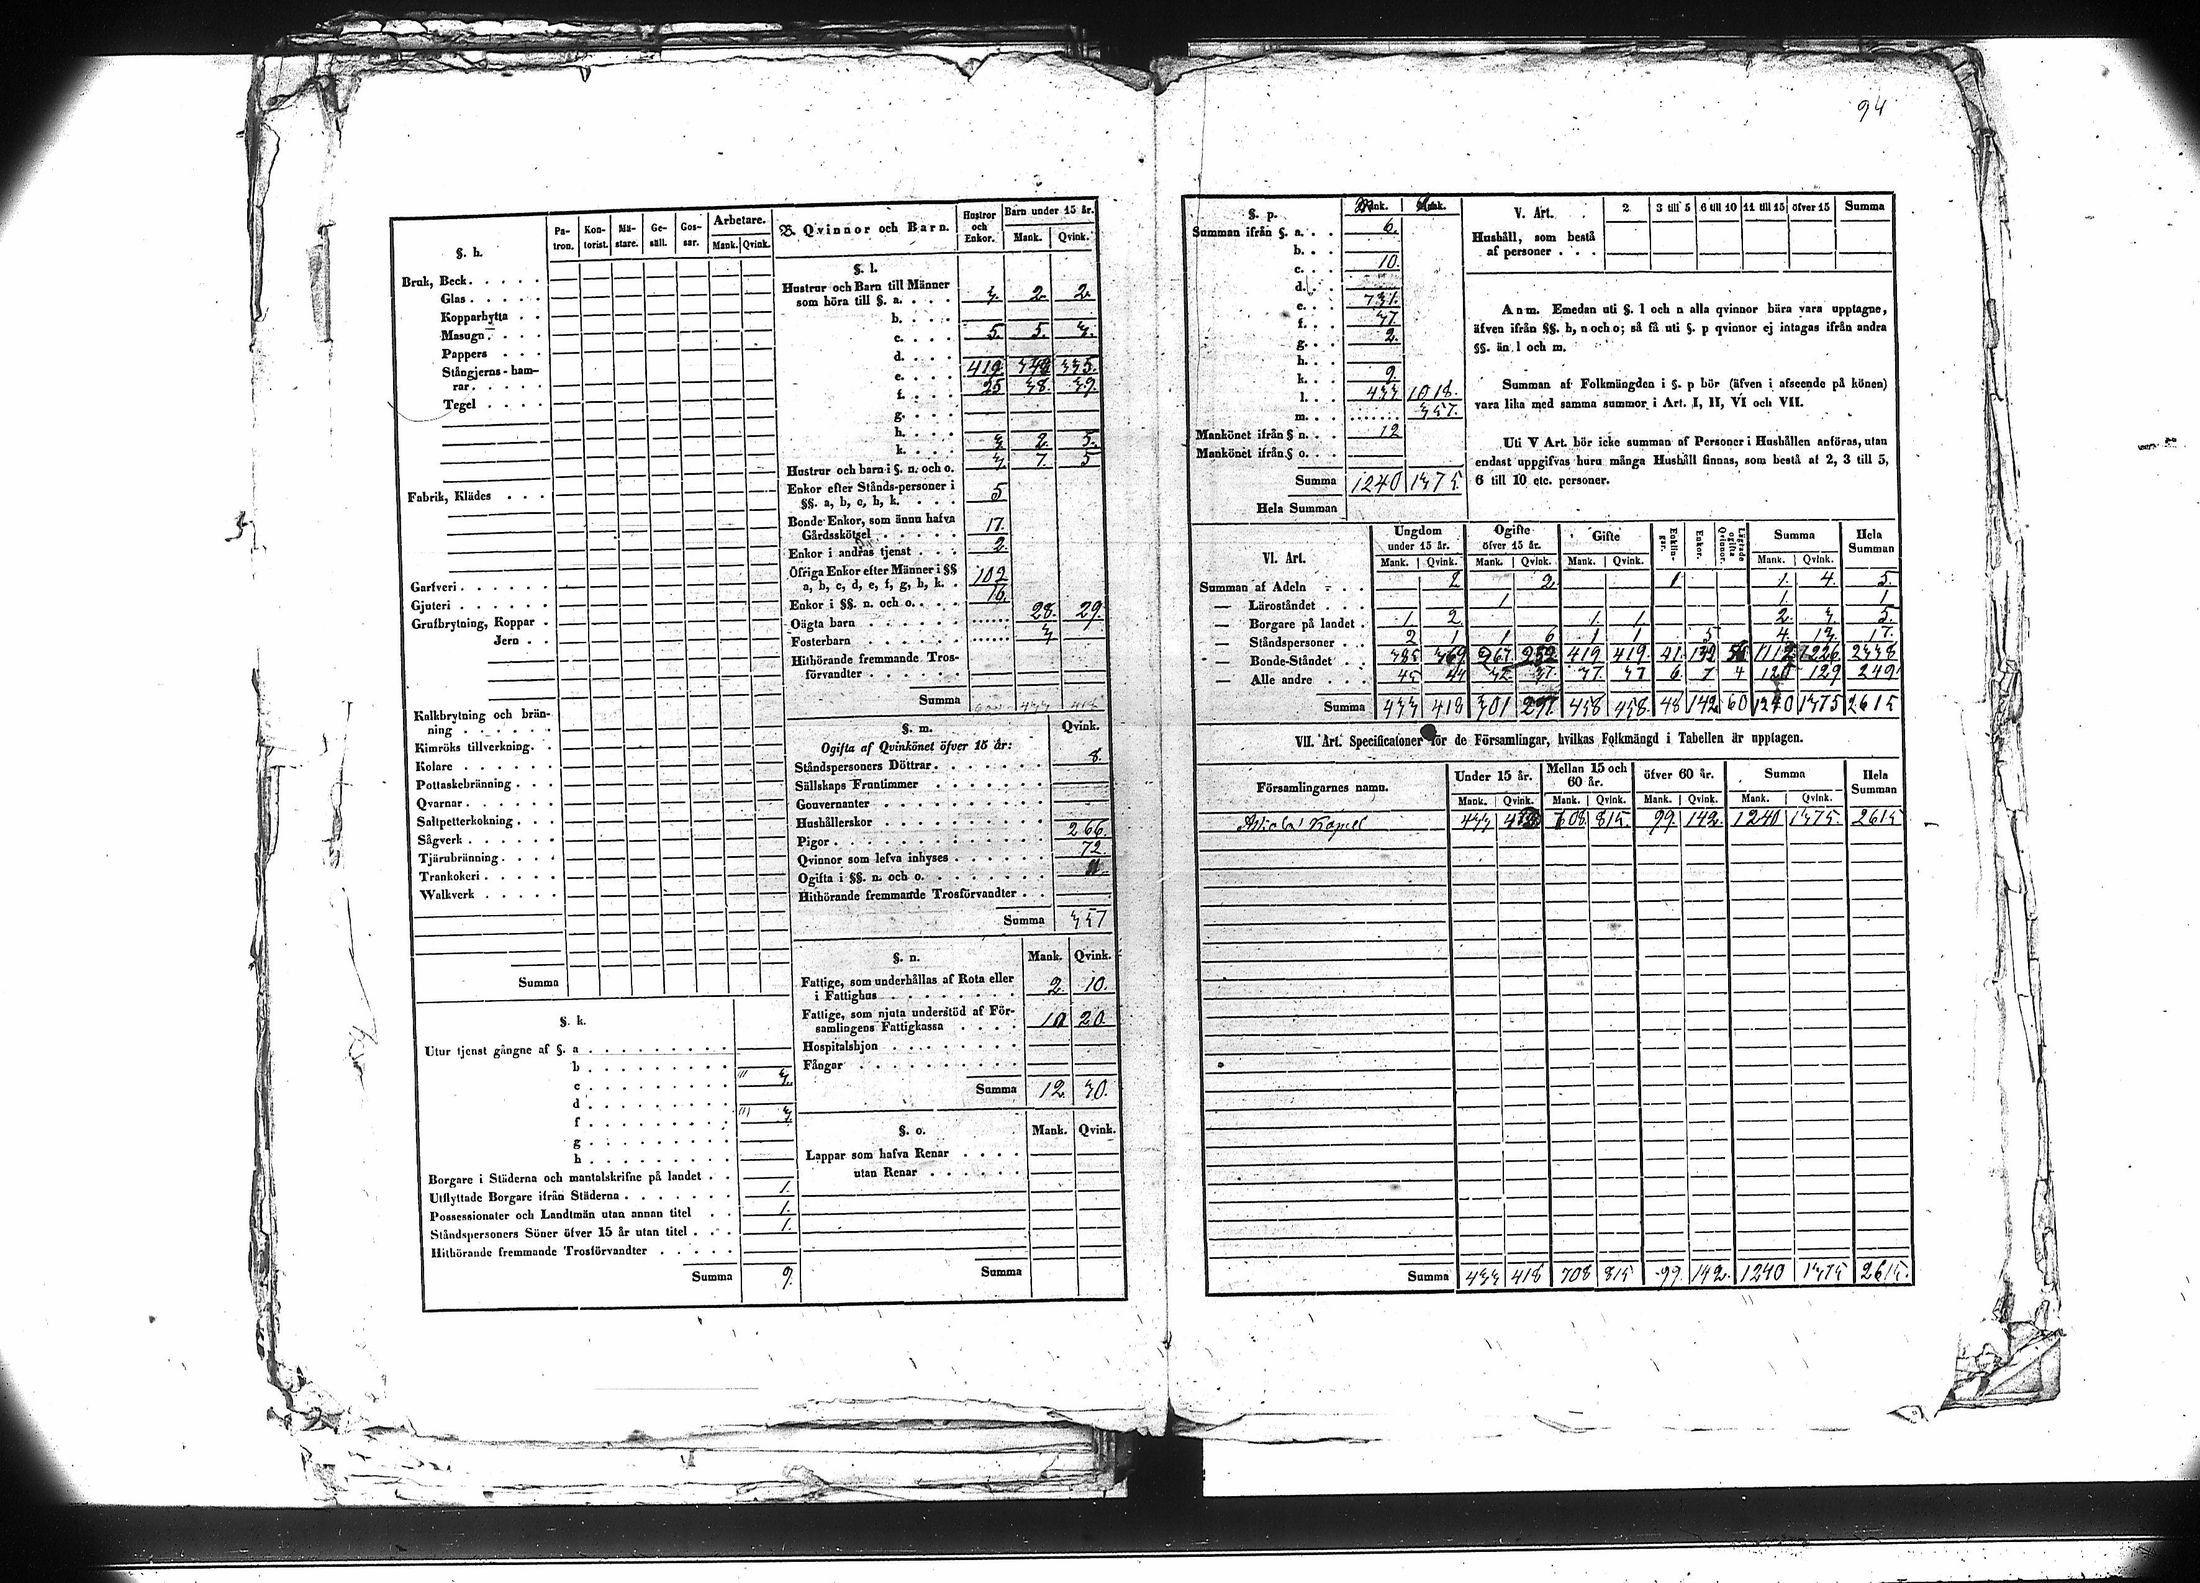 94
§. h.
Pa-tron. Kon-torist. Mä-stare. Ge-säll. Gos-sar. Arbetare. Mank. Qvink.
Bruk, Beck
Glas
Kopparhytta
Masugn
Pappers
Stångjerns-ham-
rar
Tegel
Fabrik, Klädes
Garfveri
Gjuteri
Grufbrytning, Koppar
Jern
Kalkbrytning och brän-
ning
Kimröks tillverkning
Kolare
Pottaskebränning
Qvarnar
Saltpetterkokning
Sågverk
Tjärubränning
Trankokeri
Walkverk
Summa
§. k.
Utur tjenst gångne af §. a
b
c 3.
d
f 3.
g
h
Borgare i Städerna och mantalskrifne på landet
Utflyttade Borgare ifrån Städerna 1.
Possessionater och Landtmän utan annan titel 1.
Ståndspersoners Söner öfver 15 år utan titel 1.
Hithörande fremmande Trosförvandter
Summa 9.
B. Qvinnor och Barn. Hustror och Enkor. Barn under 15 år. Mank. Qvink.
§. l.
Hustrur och Barn till Männer
som höra till §. a. 3. 2. 2.
b.
c. 5. 5. 3.
d.
e. 419. 348 335.
f. 25 38. 39.
g.
h.
k. 3 2. 5.
Hustrur och barn i §. n. och o. 3. 7. 5
Enkor efter Stånds-personer i
§§. a, b, c, h, k. 5
Bonde-Enkor, som ännu hafva
Gårdsskötsel 17.
Enkor i andras tjenst 2.
Öfriga Enkor efter Männer i §§
a, b, c, d, e, f, g, h, k. 102
Enkor i §§. n. och o. 16.
Oägta barn 28. 29.
Fosterbarn 3
Hithörande fremmande Tros-
förvandter
Summa 433 418
§. m. Qvink.
Ogifta af Qvinkönet öfver 15 år:
Ståndspersoners Döttrar 8.
Sällskaps Fruntimmer
Gouvernanter
Hushållerskor
Pigor 266.
Qvinnor som lefva inhyses 72.
Ogifta i §§. n. och o. 11.
Hithörande fremmande Trosförvandter
Summa 357
§. n. Mank. Qvink.
Fattige, som underhållas af Rota eller
i Fattighus 2. 10.
Fattige, som njuta understöd af För-
samlingens Fattigkassa 10 20.
Hospitalshjon
Fångar
Summa 12. 30.
§. o. Mank. Qvink.
Lappar som hafva Renar
utan Renar
Summa
§. p. Mank. Qvink.
Summan ifrån §. a. 6.
b.
c. 10.
d.
e. 731.
f. 37.
g. 2.
h.
k. 9.
l. 433 1018.
m. 357.
Mankönet ifrån § n. 12
Mankönet ifrån § o.
Summa 1240 1375.
Hela Summan
V. Art. 2 3 till 5 6 till 10 11 till 15 öfver 15 Summa
Hushåll, som bestå
af personer
Anm. Emedan uti §. l och n alla qvinnor bära vara upptagne,
äfven ifrån §§. h, n och o; så få uti §. p qvinnor ej intagas ifrån andra
§§. än l och m.
Summan af Folkmängden i §. p bör (äfven i afseende på könen)
vara lika med samma summor i Art. I, II, VI och VII.
Uti V Art. bör icke summan af Personer i Hushållen anföras, utan
endast uppgifvas huru många Hushåll finnas, som bestå af 2, 3 till 5,
6 till 10 etc. personer.
VI. Art. Ungdom under 15 år. Ogifte öfver 15 år. Gifte Enklin-gar. Enkor. Lägrade ogifte Qvinnor. Summa Hela Summan
Mank. Qvink. Mank. Qvink. Mank. Qvink. Mank. Qvink.
Summan af Adeln 2 2. 1. 1. 4. 5.
— Läroståndet 1 1. 1
— Borgare på landet 1. 2. 1. 1 2. 3. 5.
— Ståndspersoner 2 1 1 6 1 1 5 4. 13. 17.
— Bonde-Ståndet 385 369 267. 252 419 419 41. 132 56 1112 1226 2338
— Alle andre 45 44 32 37. 37. 37 6. 7 4 120 129 249
Summa 433 418 301 297. 458 458. 48 142 60 1240 1375 2615
VII. Art. Specificationer för de Församlingar, hvilkas Folkmängd i Tabellen är upptagen.
Församlingarnes namn. Under 15 år. Mellan 15 och 60 år. öfver 60 år. Summa Hela Summan
Mank. Qvink. Mank. Qvink. Mank. Qvink. Mank. Qvink.
Kapell 433 418 708 815. 99. 142. 1240 1375. 2615
Summa 433 418 708 815 99. 142. 1240 1375 2615.